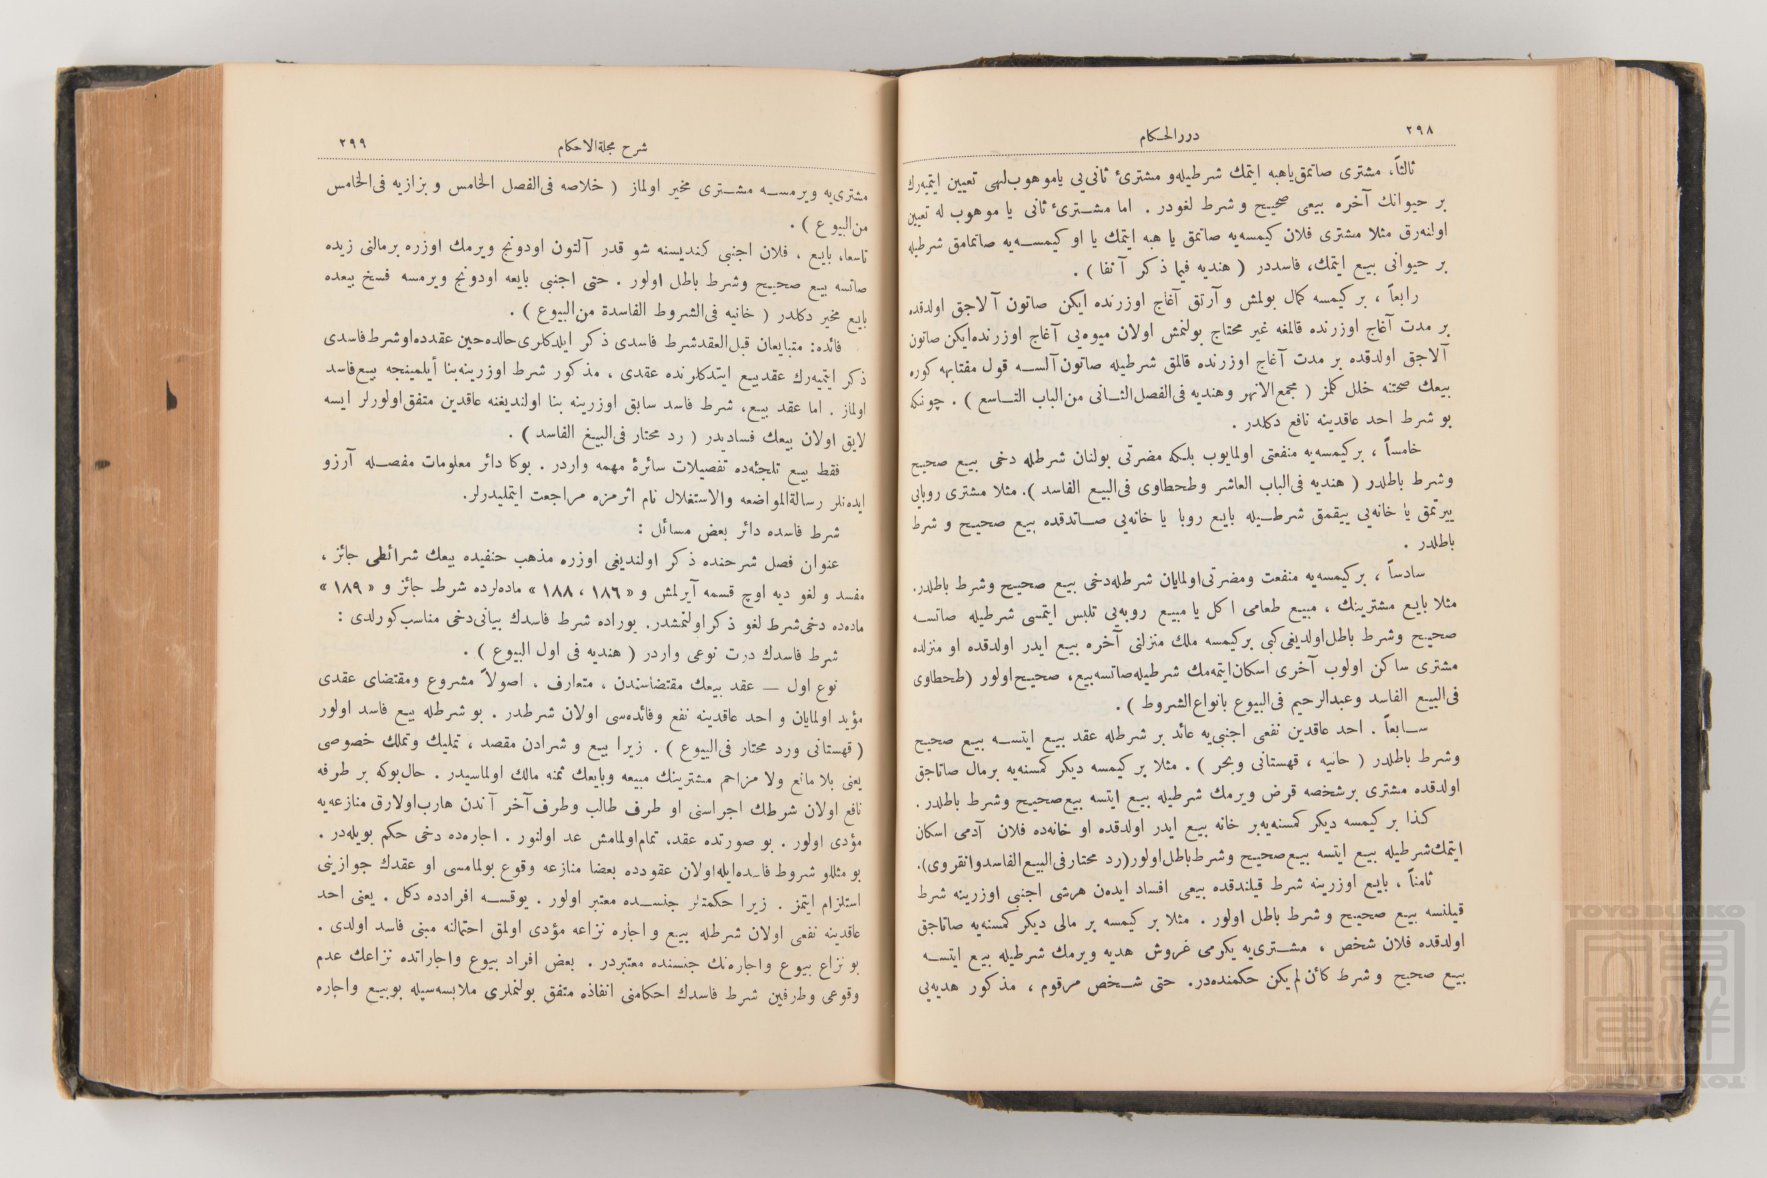 ٢٩٨
درر الحكام
ثالثاً، مشترى صاتمق ياهبه ايتمك شرطيله و مشترئ ثانى يى ياموهوب لهى تعيين ايتميه رك
بر حيوانك آخره بيعى صحيح و شرط لغودر . اما مشترئ ثانى يا موهوب له تعيين
اولنه رق مثلا مشترى فلان كيمسه يه صاتمق يا هبه ايتمك يا او كيمسه يه صاتمامق شرطيله
بر حيوانى بيع ايتمك، فاسددر ( هنديه فيما ذكر آنفا ) .
رابعاً ، بر كيمسه كمال بولمش و آرتق آغاج اوزرنده ايكن صاتون آلاجق اولدقده
بر مدت آغاج اوزرنده قالمغه غير محتاج بولنمش اولان ميوه يى آغاج اوزرنده ايكن صاتون
آلاجق اولدقده بر مدت آغاج اوزرنده قالمق شرطيله صاتون آلسه قول مفتابهه كوره
بيعك صحتنه خلل كلمز ( مجمع الانهر وهنديه فى الفصل الثانى من الباب التاسع ) . چونكه
بو شرط احد عاقدينه نافع دكلدر .
خامساً ، بر كيمسه يه منفعتى اولمايوب بلكه مضرتى بولنان شرطله دخى بيع صحيح
وشرط باطلدر ( هنديه فى الباب العاشر وطحطاوى فى البيع الفاسد ). مثلا مشترى روبايى
ييرتمق يا خانه يى ييقمق شرطيله بايع روبا يا خانه يى صاتدقده بيع صحيح و شرط
باطلدر .
سادساً ، بر كيمسه يه منفعت ومضرتى اولمايان شرطله دخى بيع صحيح وشرط باطلدر.
مثلا بايع مشترينك ، مبيع طعامى اكل يا مبيع روبه يى تلبس ايتمسى شرطيله صاتسه
صحيح وشرط باطل اولديغى كبى بر كيمسه ملك منزلنى آخره بيع ايدر اولدقده او منزلده
مشترى ساكن اولوب آخرى اسكان ايتمه مك شرطيله صاتسه بيع، صحيح اولور (طحطاوى
فى البيع الفاسد وعبدالرحيم فى البيوع بانواع الشروط ) .
سابعاً . احد عاقدين نفعى اجنبى يه عائد بر شرطله عقد بيع ايتسه بيع صحيح
وشرط باطلدر ( خانيه ، قهستانى وبحر ) . مثلا بر كيمسه ديكر كمسنه يه برمال صاتاجق
اولدقده مشترى بر شخصه قرض ويرمك شرطيله بيع ايتسه بيع صحيح وشرط باطلدر .
كذا بر كيمسه ديكر كمسنه يه بر خانه بيع ايدر اولدقده او خانه ده فلان آدمى اسكان
ايتمك شرطيله بيع ايتسه بيع صحيح وشرط باطل اولور (رد محتار فى البيع الفاسد وانقروى).
ثامناً ، بايع اوزرينه شرط قيلندقده بيعى افساد ايدەن هرشى اجنبى اوزرينه شرط
قيلنسه بيع صحيح و شرط باطل اولور . مثلا بر كيمسه بر مالى ديكر كمسنه يه صاتاجق
اولدقده فلان شخص ، مشترى يه يكرمى غروش هديه ويرمك شرطيله بيع ايتسه
بيع صحيح و شرط كائن لم يكن حكمنده در. حتى شخص مرقوم ، مذكور هديه يى
شرح مجلة الاحكام
٢٩٩
مشترى يه ويرمسه مشترى مخير اولماز ( خلاصه فى الفصل الخامس و بزازيه فى الخامس
من البيوع ) .
تاسعا، بايع ، فلان اجنبى كنديسنه شو قدر آلتون اودونج ويرمك اوزره برمالنى زيده
صاتسه بيع صحيح وشرط باطل اولور . حتى اجنبى بايعه اودونج ويرمسه فسخ بيعده
بايع مخير دكلدر ( خانيه فى الشروط الفاسدة من البيوع ) .
فائده: متبايعان قبل العقد شرط فاسدى ذكر ايلدكلرى حالده حين عقدده او شرط فاسدى
ذكر ايتميه رك عقد بيع ايتدكلرنده عقدى ، مذكور شرط اوزرينه بنا أيلمينجه بيع فاسد
اولماز . اما عقد بيع، شرط فاسد سابق اوزرينه بنا اولنديغنه عاقدين متفق اولورلر ايسه
لايق اولان بيعك فساديدر ( رد محتار فى البيع الفاسد ) .
فقط بيع تلجئه ده تفصيلات سائرهٔ مهمه واردر . بوكا دائر معلومات مفصله آرزو
ايدەنلر رسالة المواضعه والاستغلال نام اثرمزه مراجعت ايتمليدرلر.
شرط فاسده دائر بعض مسائل :
عنوان فصل شرحنده ذكر اولنديغى اوزره مذهب حنفيده بيعك شرائطى جائز ،
مفسد و لغو ديه اوچ قسمه آيرلمش و « ١٨٦ ، ١٨٨ » ماده لرده شرط جائز و « ١٨٩ »
ماده ده دخى شرط لغو ذكر اولنمشدر. بوراده شرط فاسدك بيانى دخى مناسب كورلدى :
شرط فاسدك درت نوعى واردر ( هنديه فى اول البيوع ) .
نوع اول — عقد بيعك مقتضاسندن ، متعارف ، اصولاً مشروع ومقتضاى عقدى
مؤيد اولمايان و احد عاقدينه نفع وفائده سى اولان شرطدر . بو شرطله بيع فاسد اولور
( قهستانى ورد محتار فى البيوع ) . زيرا بيع و شرادن مقصد ، تمليك وتملك خصوصى
يعنى بلا مانع ولا مزاحم مشترينك مبيعه وبايعك ثمنه مالك اولماسيدر . حال بوكه بر طرفه
نافع اولان شرطك اجراسنى او طرف طالب وطرف آخر آندن هارب اولارق منازعه يه
مؤدى اولور . بو صورتده عقد، تمام اولمامش عد اولنور . اجاره ده دخى حكم بويله در .
بو مثللو شروط فاسده ايله اولان عقودده بعضا منازعه وقوع بولمامسى او عقدك جوازينى
استلزام ايتمز . زيرا حكمتلر جنسده معتبر اولور . يوقسه افرادده دكل . يعنى احد
عاقدينه نفعى اولان شرطله بيع و اجاره نزاعه مؤدى اولمق احتمالنه مبنى فاسد اولدى .
بو نزاع بيوع و اجاره نك جنسنده معتبردر . بعض افراد بيوع و اجاراتده نزاعك عدم
وقوعى وطرفين شرط فاسدك احكامنى انفاذه متفق بولنملرى ملابسه سيله بوبيع و اجاره
TOYO BUNKO
東洋文庫